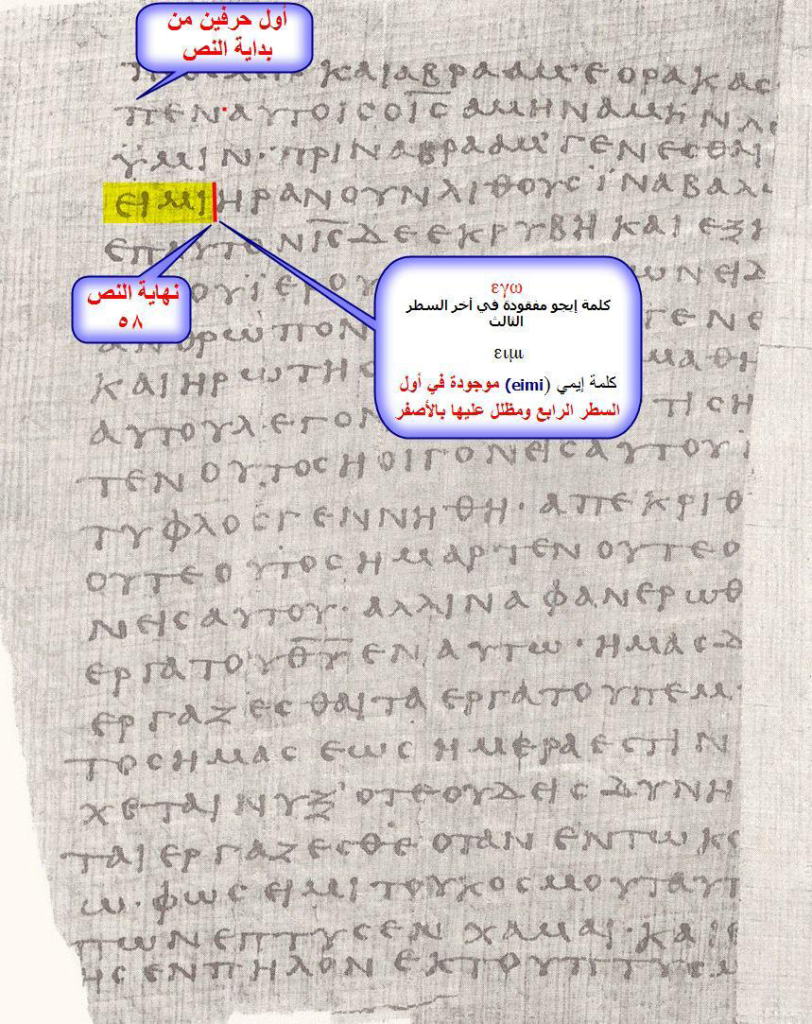 أول حرفين من
بداية النص
ΚΑΙΑΒΡΑΑΜ’ΕΟΡΑΚΑϹ
ΠΕΝ·ΑΥΤΟΙϹΟΙ̅Ϲ̅ΑΜΗΝΑΜΗΝΛΕ
ΥΜΙΝ·ΠΡΙΝΑΒΡΑΑΜ’ΓΕΝΕϹΘΑΙ
ΕΙΜΙΗΡΑΝΟΥΝΛΙΘΟΥϹΪΝΑΒΑΛ
ΕΠΑΥΤΟΝΙ̅Ϲ̅ΔΕΕΚΡΥΒΗΚΑΙΕΞΗ
ΟΥΪΕΡΟΥ ΩΝΕΙΔ
ΑΝΘΡΩΠΟΝ ΓΕΝΕ
ΚΑΙΗΡΩΤΗϹ ΜΑΘΗ
ΑΥΤΟΥΛΕΓΟΝ ΤΙϹΗ
ΤΕΝΟΥΤΟϹΗΟΙΓΟΝΕΙϹΑΥΤΟΥΙ
ΤΥΦΛΟϹΓΕΝΝΗΘΗ·ΑΠΕΚΡΙΘ
ΟΥΤΕΟΥΤΟϹΗΜΑΡΤΕΝΟΥΤΕΟ
ΝΕΙϹΑΥΤΟΥ·ΑΛΛΙΝΑΦΑΝΕΡΩΘ
ΕΡΓΑΤΟΥΘ̅Υ̅ΕΝΑΥΤΩ·ΗΜΑϹΔ
ΕΡΓΑΖΕϹΘΑΙΤΑΕΡΓΑΤΟΥΠΕΜ
ΤΟϹΗΜΑϹΕΩϹΗΜΕΡΑΕϹΤΙΝ
ΧΕΤΑΙΝΥΞ’ΟΤΕΟΥΔΕΙϹΔΥΝΗ
ΤΑΙΕΡΓΑΖΕϹΘΕ·ΟΤΑΝΕΝΤΩΚΟ
Ω·ΦΩϹΕΙΜΙΤΟΥΚΟϹΜΟΥΤΑΥΤ
ΠΩΝΕΠΤΥϹΕΝΧΑΜΑΙ·ΚΑΙΕ
ΗϹΕΝΠΗΛΟΝΕΚΤΟΥΠΤΥϹΜ
نهاية النص
٥٨
εγω
كلمة إيجو مفقودة في آخر السطر
الثالث
ειμι
كلمة إيمي (eimi) موجودة في أول
السطر الرابع ومظلل عليها بالأصفر